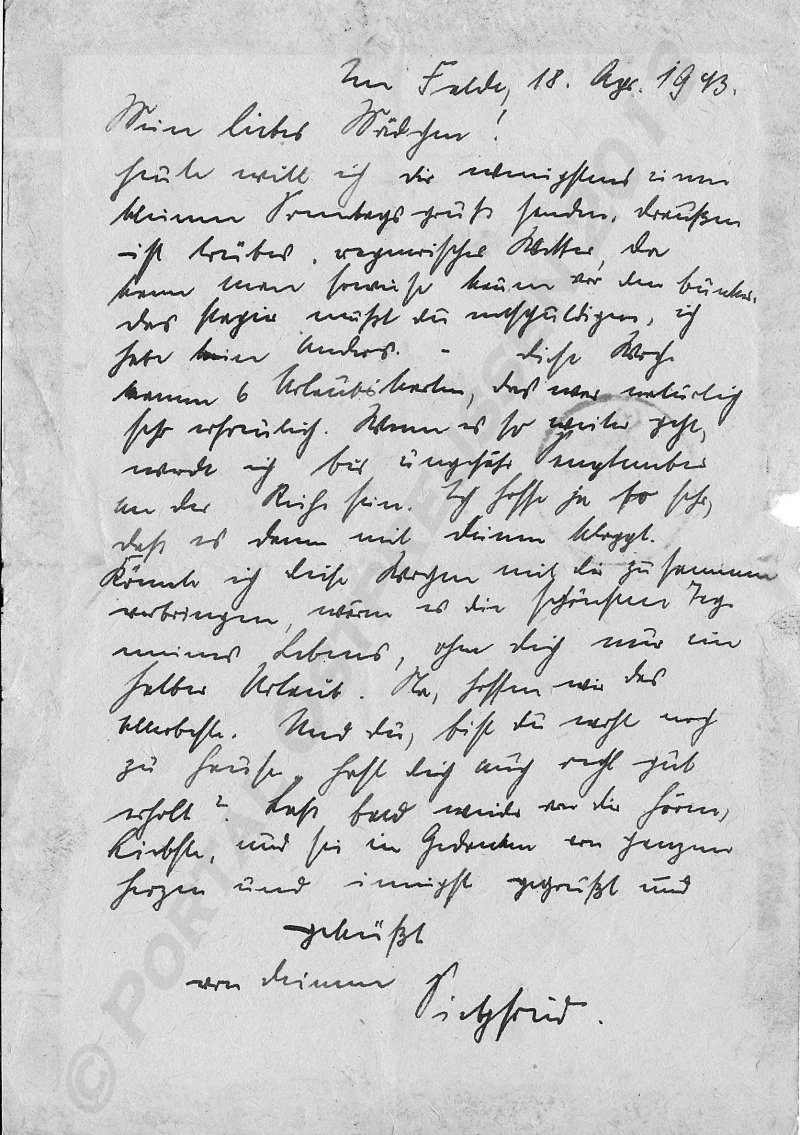 Im Felde, 18. Apr. 1943.
Mein liebes Mädchen!
heute will ich dir wenigstens einen
kleinen Sonntagsgruß senden. draußen
ist trübes, regnerisches Wetter, da
kann man sowieso kaum vor den bunker.
das Papier mußt du entschuldigen, ich
habe kein anders. - diese Woche
kamen 6 Urlaubskarten, das war natürlich
sehr erfreulich. Wenn es so weiter geht,
werde ich bis ungefähr September
an der Reihe sein. Ich hoffe ja so sehr,
daß es dann mit deinem klappt.
Könnte ich diese Wochen mit dir zusammen
verbringen, wären es die schönsten Tage
meines Lebens, ohne dich nur ein
halber Urlaub. Na, hoffen wir das
allerbeste. Und du, bist du wohl noch
zu hause, hast dich auch recht gut
erholt? Laß bald wieder von dir hören,
Liebste, und sei in Gedanken von ganzem
herzen und innigst gegrüßt und
geküßt
von deinem Siegfried.
© PORTAL-OSTPREUSSEN 2018